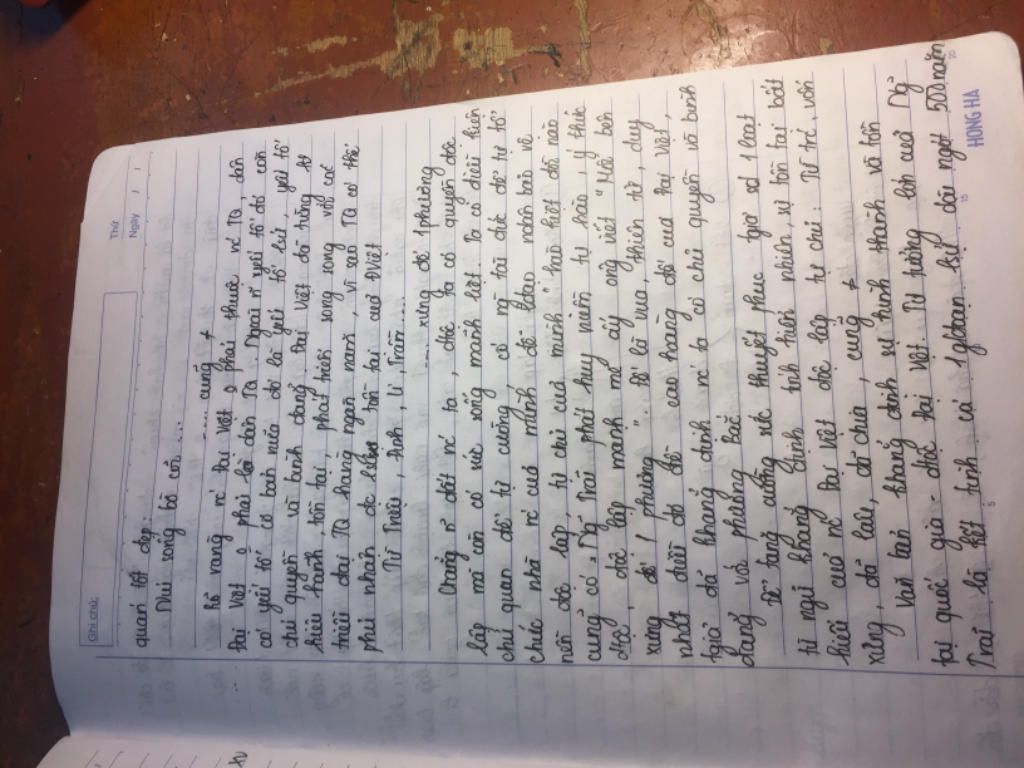 Thứ
Ngày / /
Ghi chú:
quán tốt đẹp.
Như sông bờ cõi...
........ cũng ≠
Rõ ràng nc Đại Việt phải thuộc nc TQ, dân
Đại Việt phải là dân TQ. Ngoài n~ yếu tố đó còn
có yếu tố cơ bản nữa đó là yếu tố lsử, yếu tố
chủ quyền vì bình đẳng Đại Việt đã từng tự
hiên ngang tồn tại, phát triển song song với các
triều đại TQ hàng ngàn năm, vì sao TQ có thể
phủ nhận đc tồn tại của ĐViệt
Từ Triệu, Đinh, Lí, Trần...
........ xưng đế 1 phương
Chẳng n~ đất nc ta, dtộc ta có quyền độc
lập mà còn có sức sống mãnh liệt. Ta có điều kiện
chủ quan để tự cường, có n~ tài đức để tự tổ
chức nhà nc của mình, để lãnh đạo nhân bảo vệ
nền độc lập, tự chủ của mình " hào kiệt đời nào
cũng có". Ng Trãi phát huy niềm tự hào, ý thức
dtộc, độc lập mạnh mẽ ấy ông viết " Mỗi bên
xưng đế 1 phương". "Đế" là vua, thiên tử, duy
nhất điều đó đề cao hoàng đế của Đại Việt,
tgiả đã khẳng định nc ta có chủ quyền và bình
đẳng với phương Bắc
Để tăng cường sức thuyết phục tgiả sd 1 loạt
từ ngữ khẳng định tính hiển nhiên, sự tồn tại bất
hiếu của nc Đại Việt độc lập tự chủ: Từ trc, vốn
xưng, đã lâu, đã chia, cũng ≠
Văn bản khẳng định sự hình thành và tồn
tại quốc gia - dtộc Đại Việt. Tư tưởng lớn của Ng
Trãi là kết tinh cả 1 gđoạn lsử dài ngót 500 năm
5 15 20
HONG HA